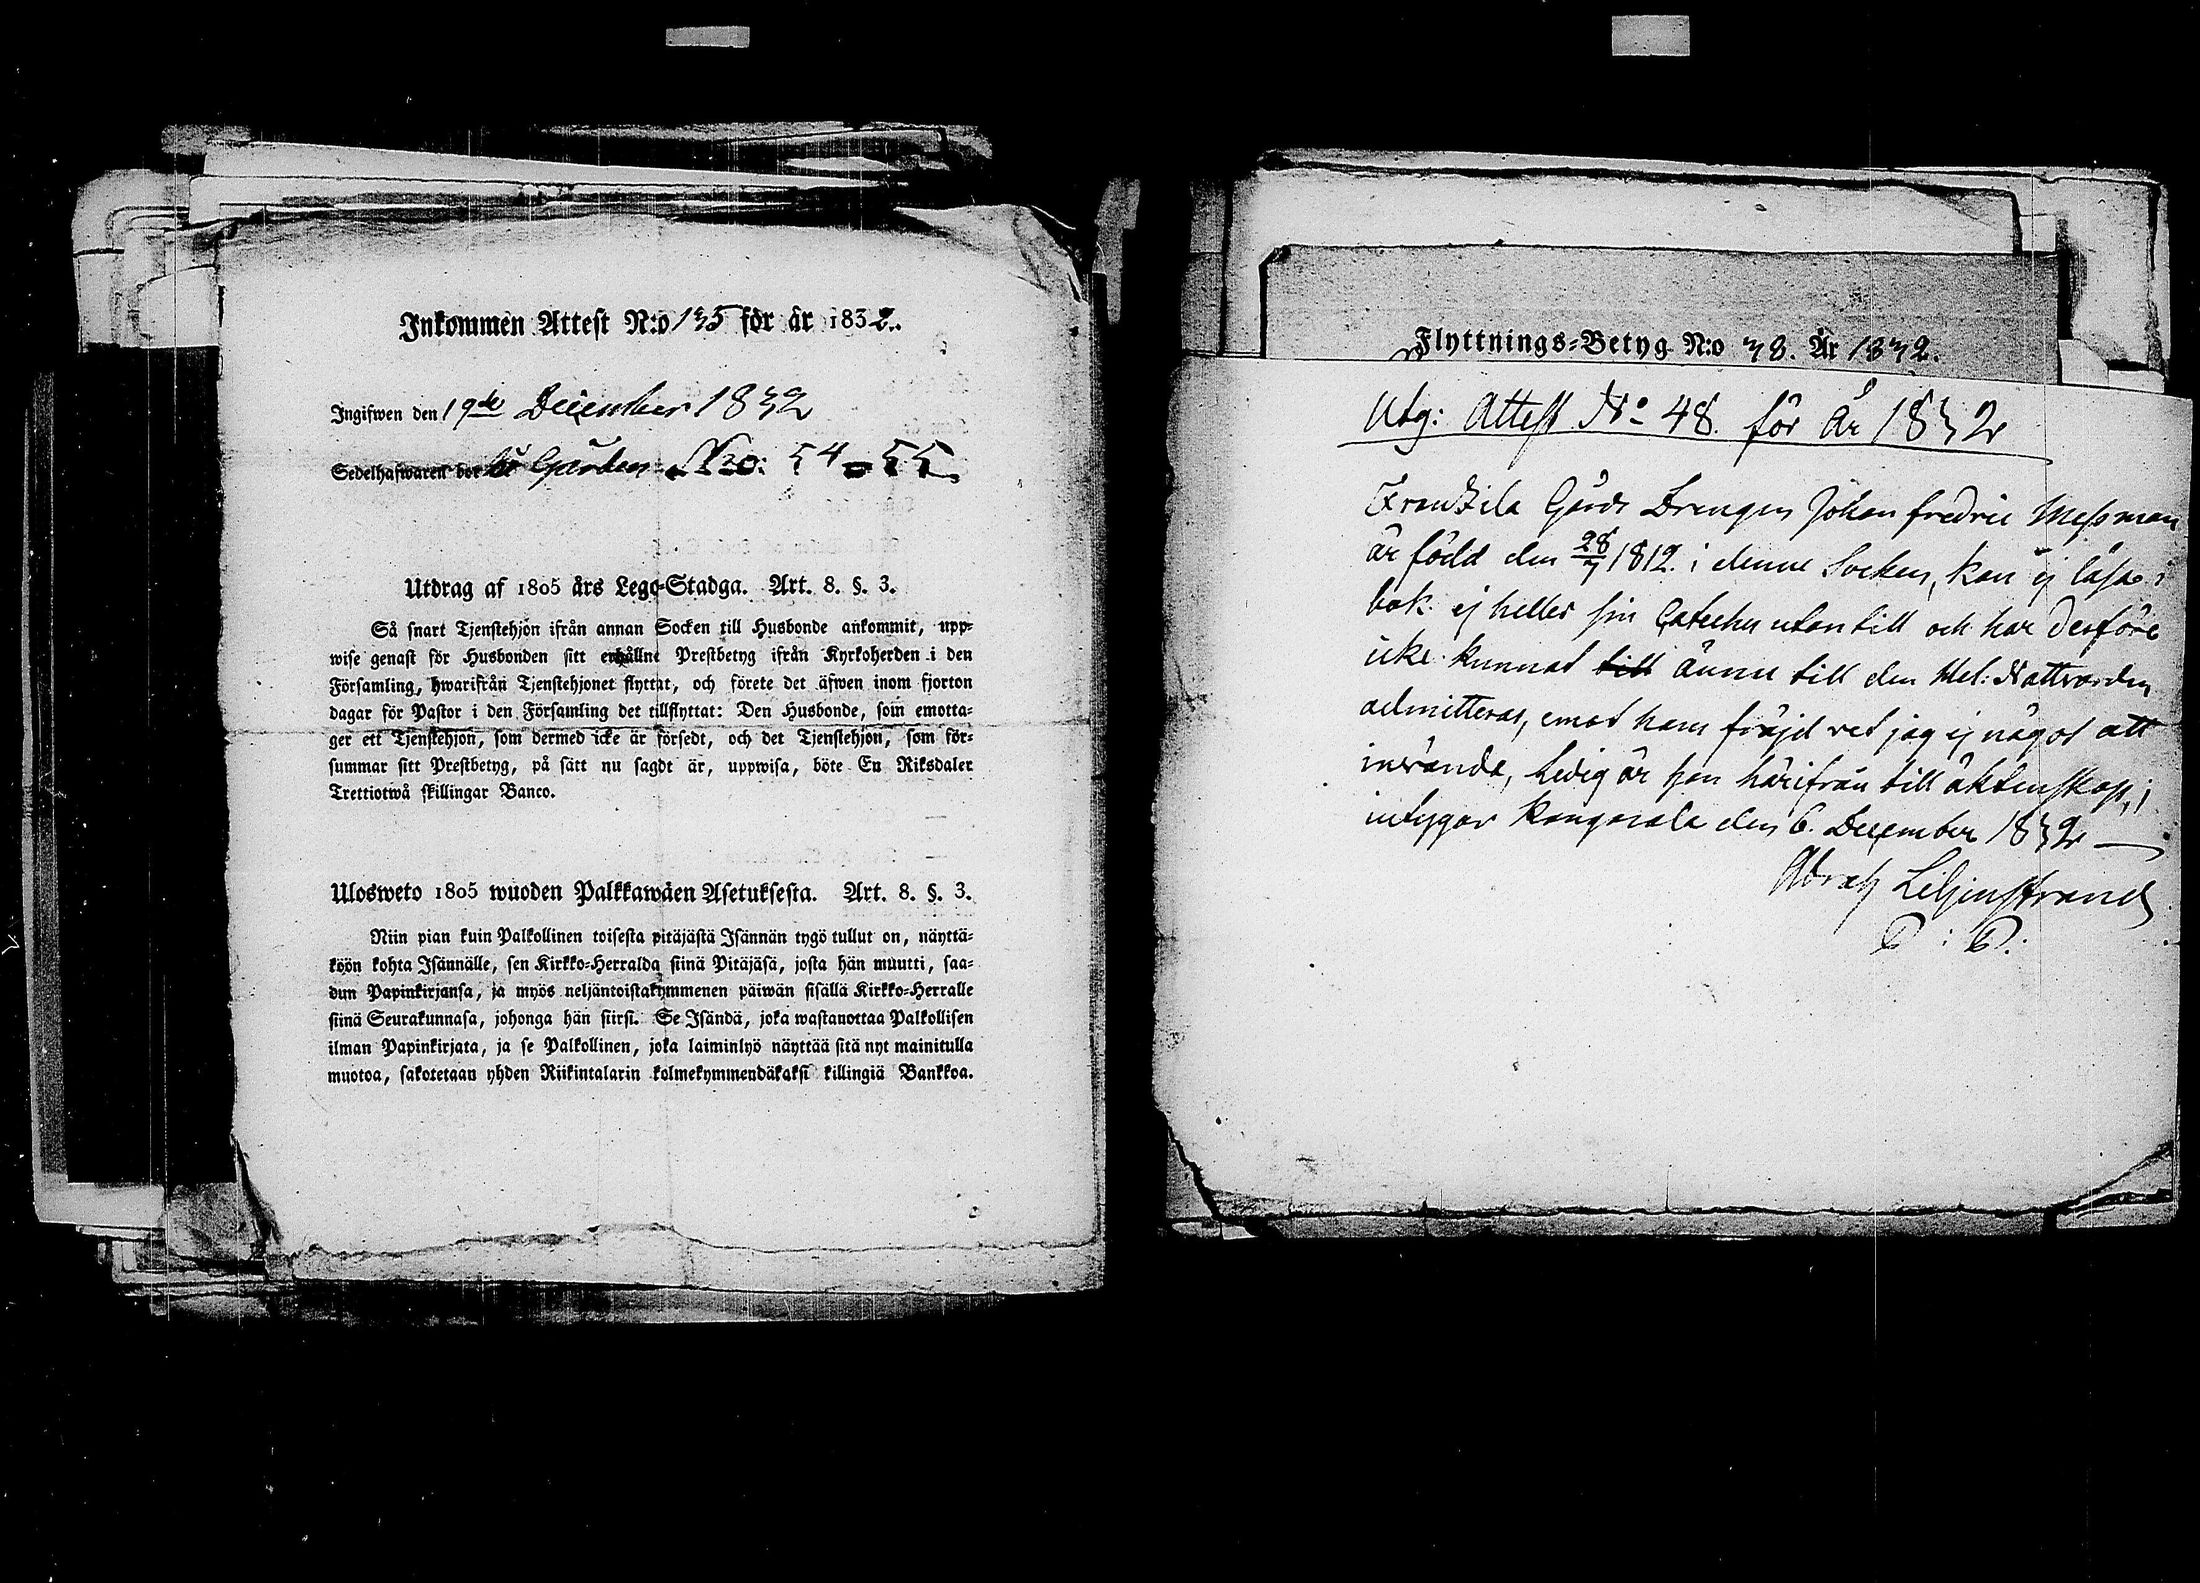 Inkommen Attest N:o 135 för år 1832.
Ingifwen den 19de December 1832
Sedelhafwaren bor å Gården Nro: 54-55.
Utdrag af 1805 års Lego-Stadga. Art. 8. §. 3.
Så snart Tjenstehjon ifrån annan Socken till Husbonde ankommit, upp-
wise genast för Husbonden sitt erhållne Prestbetyg ifrån Kyrkoherden i den
Församling, hwarifrån Tjenstehjonet flyttat, och förete det äfwen inom fjorton
dagar för Pastor i den Församling det tillflyttat: Den Husbonde, som emotta-
ger ett Tjenstehjon, som dermed icke är försedt, och det Tjenstehjon, som för-
summar sitt Prestbetyg, på sätt nu sagdt är, uppwisa, böte En Riksdaler
Trettiotwå skillingar Banco.
Ulosweto 1805 wuoden Palkkawäen Asetuksesta. Art. 8. §. 3.
Niin pian kuin Palkollinen toisesta pitäjästä Isännän tygö tullut on, näyttä-
köön kohta Isännälle, sen Kirkko-Herralda siinä Pitäjäsä, josta hän muutti, saa-
dun Papinkirjansa, ja myös neljäntoistakymmenen päiwän sisällä Kirkko-Herralle
siinä Seurakunnasa, johonga hän siirsi. Se Isändä, joka wastanottaa Palkollisen
ilman Papinkirjata, ja se Palkollinen, joka laiminlyö näyttää sitä nyt mainitulla
muotoa, sakotetaan yhden Riikintalarin kolmekymmendäkaksi killingiä Bankkoa.
Flyttnings-Betyg N:o 38. År 1832.
Utg: Attest No 48. för År 1832
Frantzila Gårds Drengen Johan Fredric Messman
är född den 28/7 1812. i denne Socken, kan ej läsa i
bok ej heller sin Cateches utantill och har derföre
icke kunnat till ännu till den Hel: Nattvarden
admitteras, emot hans fräjd vet jag ej något att
invända, Ledig är han härifrån till äktenskap,
intygar Kangasala den 6. December 1832
Abrah Liljenstrand